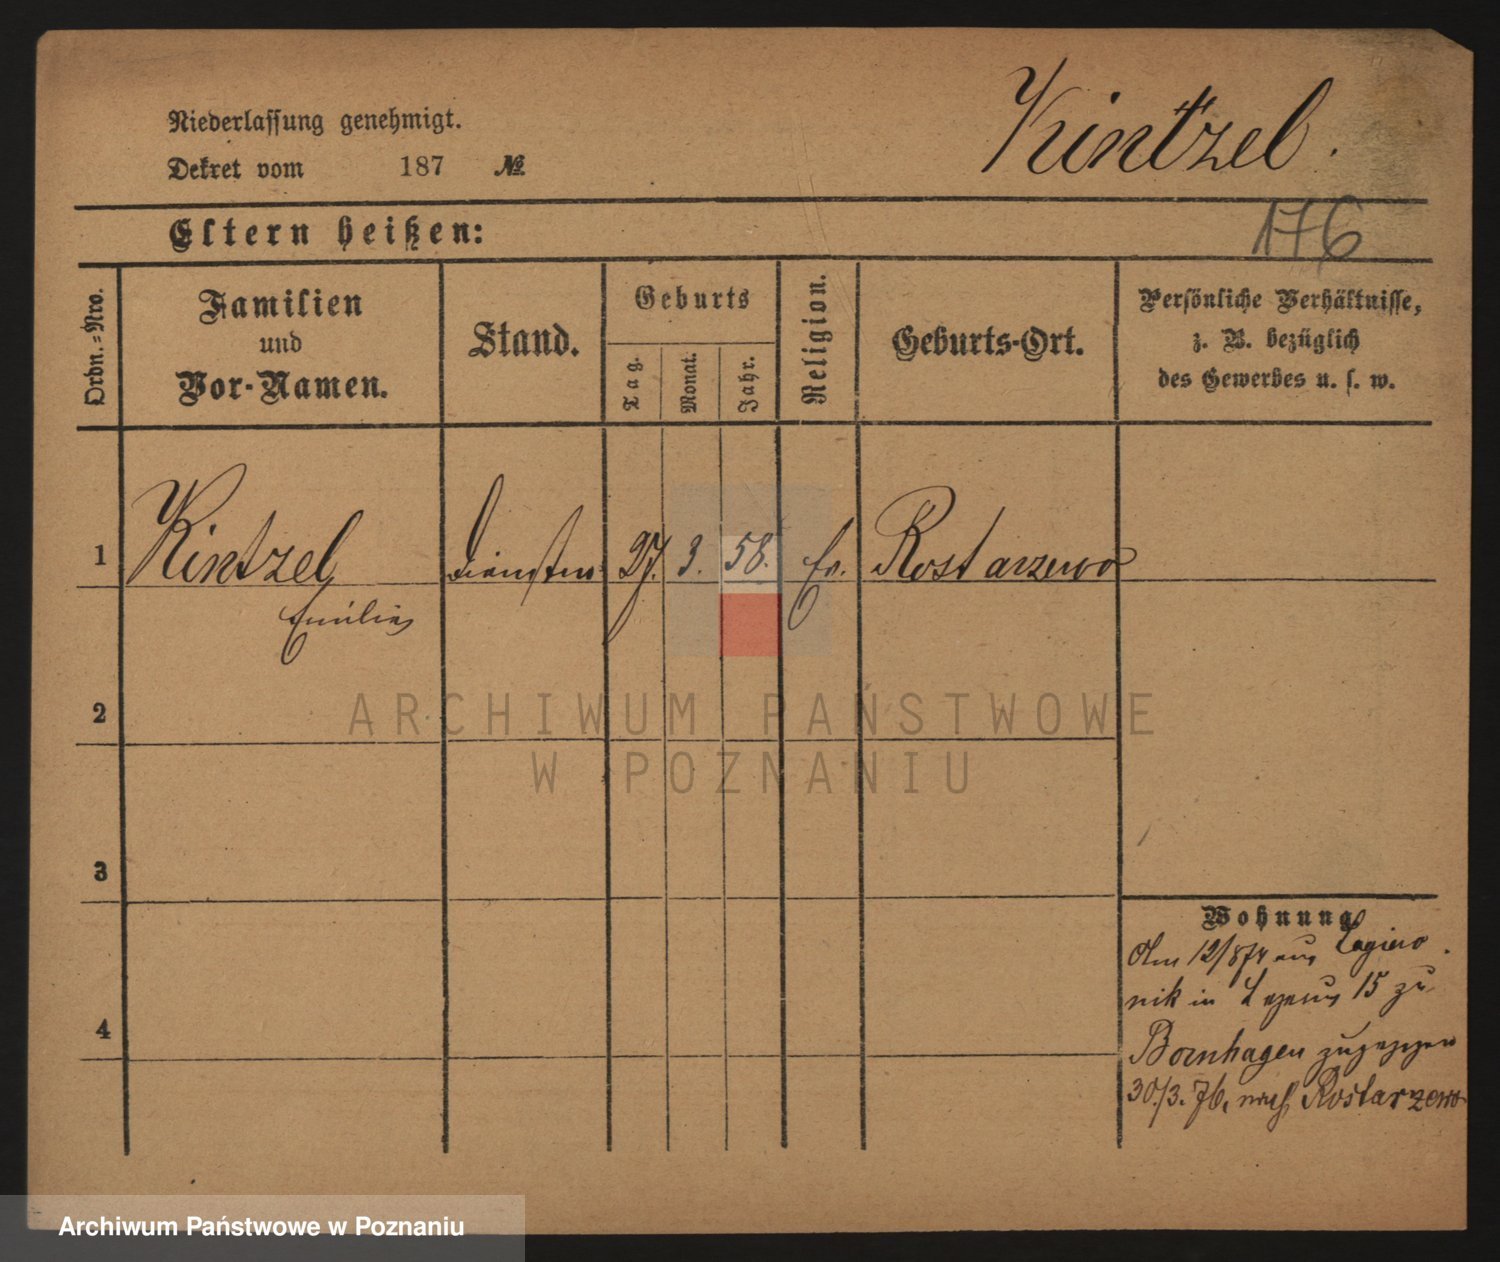 Niederlassung genehmigt.
Dekret vom 187 №
Kintzel.
176
Eltern heißen:
Ordn.=Nro.
Familien
und
Vor-Namen.
Stand.
Geburts
Tag.
Monat.
Jahr.
Religion.
Geburts-Ort.
Persönliche Verhältnisse,
z. B. bezüglich
des Gewerbes u. s. w.
1 Kintzel 27. 3. 58. Ev. Rostarzewo
Emilie
2
3
4
Wohnung
Am 12/8 74 aus
nik in 15 zu
Bornhagen zugezogen
30./3. 76. nach Rostarzewo
ARCHIWUM PAŃSTWOWE
W POZNANIU
Archiwum Państwowe w Poznaniu